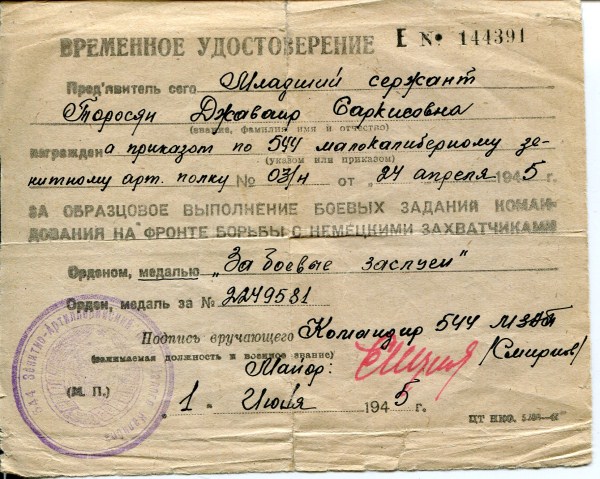 ВРЕМЕННОЕ УДОСТОВЕРЕНИЕ Е № 144391
Пред'явитель сего Младший сержант
Торосян Джаваир Саркисовна
(звание, фамилия, имя и отчество)
награждена приказом по 544 малокалиберному зе-
(указом или приказом)
нитному арт. полку № 03/н от "24 апреля 1945 г.
ЗА ОБРАЗЦОВОЕ ВЫПОЛНЕНИЕ БОЕВЫХ ЗАДАНИЙ КОМАН-
ДОВАНИЯ НА ФРОНТЕ БОРЬБЫ С НЕМЕЦКИМИ ЗАХВАТЧИКАМИ
Орденом, медалью „За боевые заслуги"
Орден, медаль за № 2249581
Подпись вручающего Командир 544 МЗАП
(занимаемая должность и военное звание)
Майор: (Смирнов)
(М. П.)
"1" Июля 1945 г.